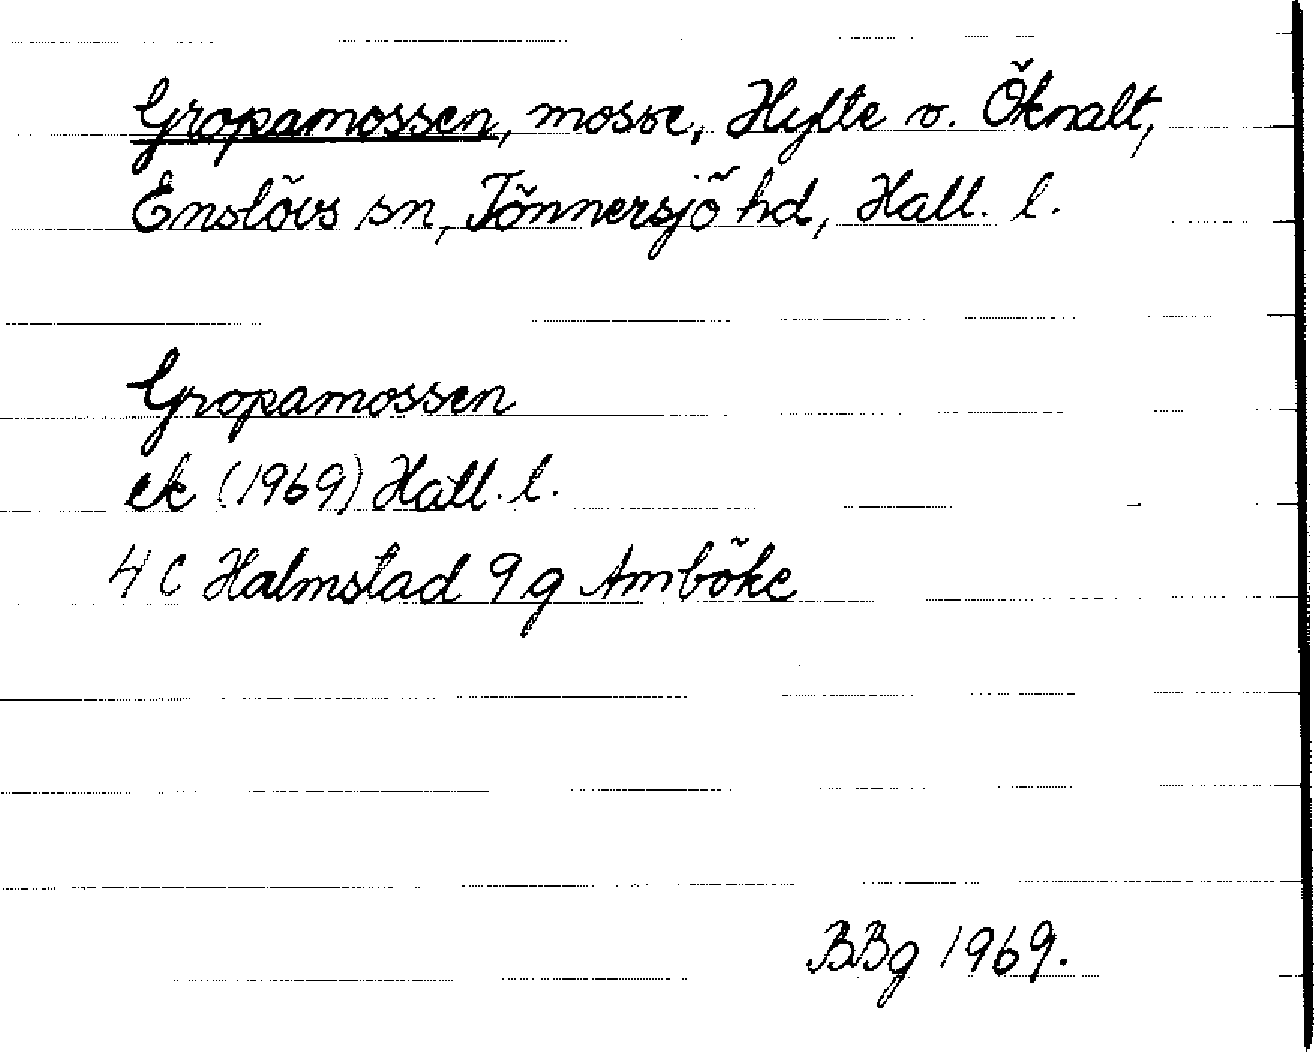 Gropamossen, mosse, Hylte o. Öknalt,
Enslövs sn, Tönnersjö hd, Hall. l.
Gropamossen
ek (1969) Hall. l.
4 C Halmstad 9 g Amböke
BBg 1969.